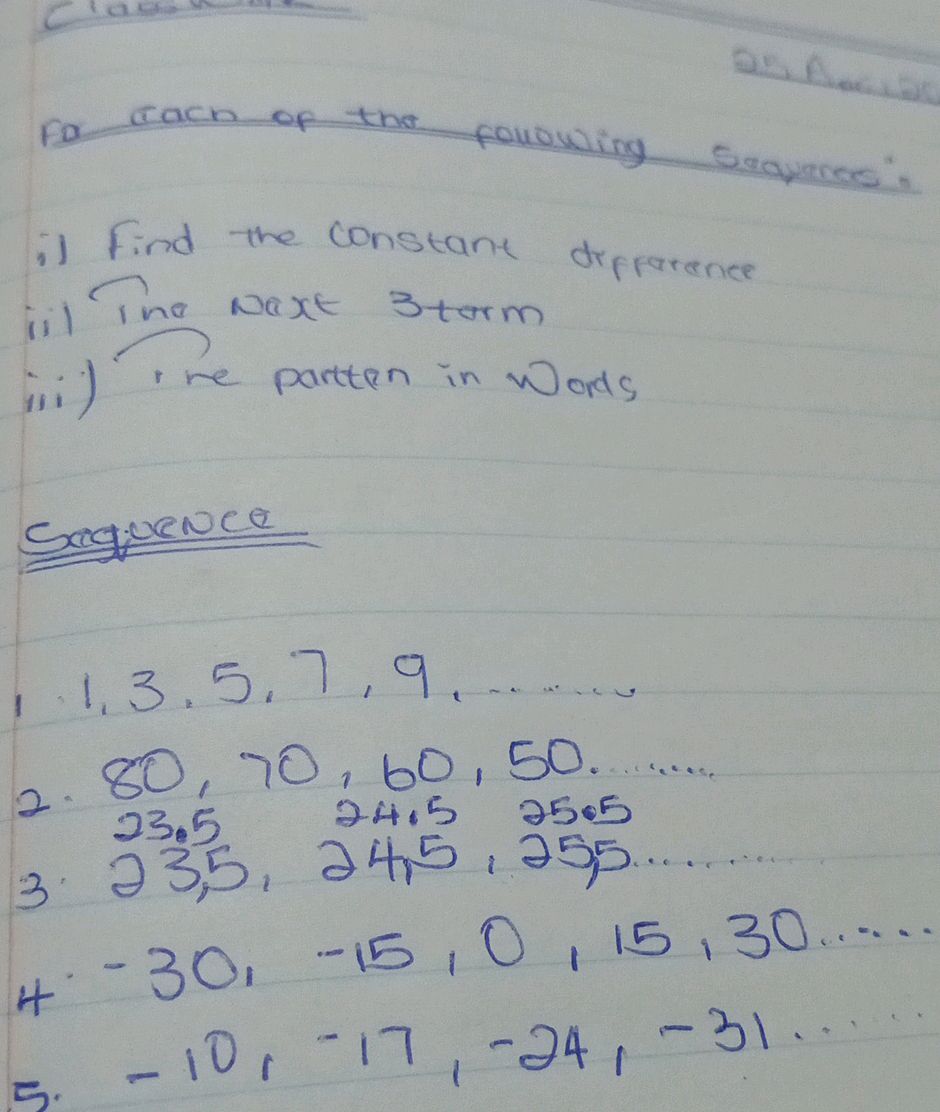 For each of the following Sequences:
i) Find the constant difference
ii) The Next 3 term
iii) The partten in Words
Sequence
1. 1, 3, 5, 7, 9, ........
2. 80, 70, 60, 50.........
23.5 24.5 25.5
3. 23,5, 24,5, 25,5..........
4. -30, -15, 0, 15, 30......
5. -10, -17, -24, -31.......